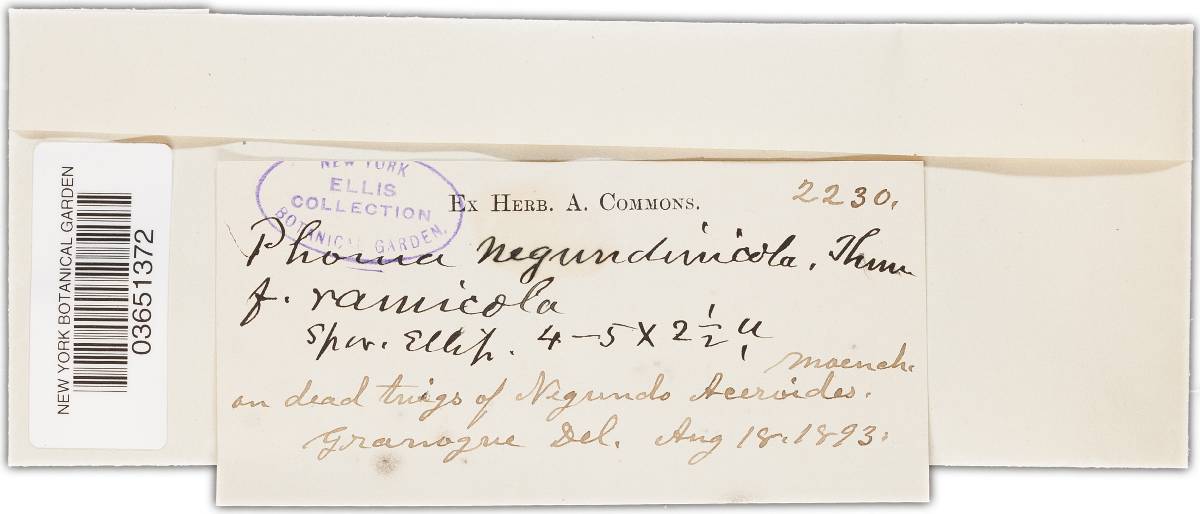 NEW YORK BOTANICAL GARDEN
03651372
NEW YORK
ELLIS
COLLECTION
BOTANICAL GARDEN.
Ex Herb. A. Commons.
2230.
Phoma negundinicola, Thum
f. ramicola
Spor. Ellip. 4-5 X 2 1/2 u
on dead twigs of Negundo Aceroides. Moench.
Granogue Del. Aug 18. 1893.